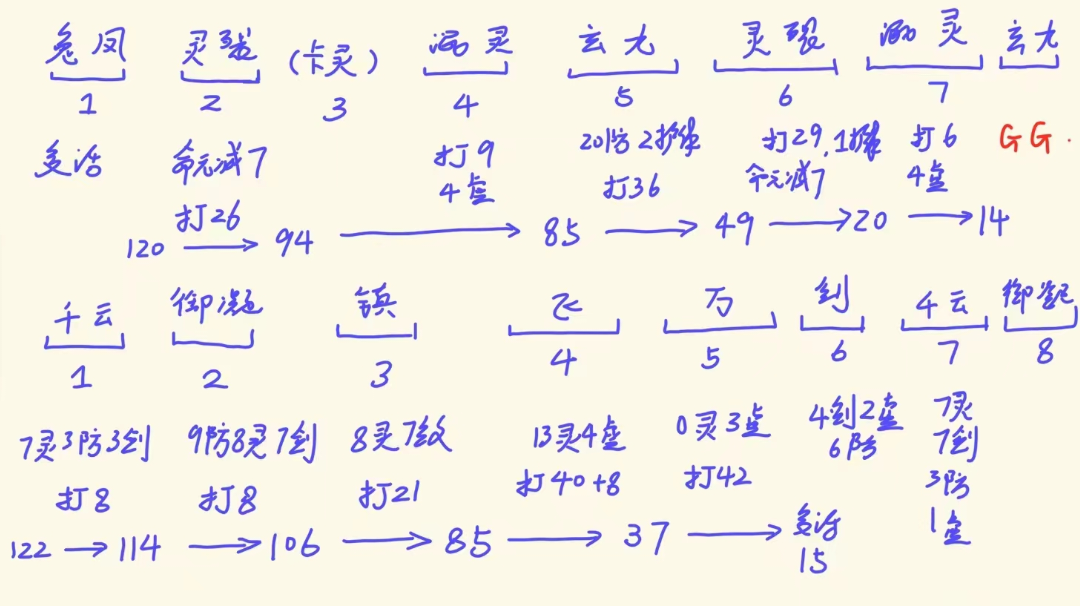 凤 灵 (卡灵) 涡灵 玄九 灵 涡灵 玄九
1 2 3 4 5 6 7
复活 命元减7 打9 20防2 打29 1 打6 GG.
打26 4盘 打36 命元减7 4盘
120 → 94 → 85 → 49 → 20 → 14
千云 御 镇 飞 万 剑 千云 御
1 2 3 4 5 6 7 8
7灵3防3剑 9防8灵7剑 8灵7纹 13灵4盘 0灵3盘 4剑2盘 7灵
6防 7剑
打8 打8 打21 打40+8 打42 3防
122 → 114 → 106 → 85 → 37 → 复活 1盘
15